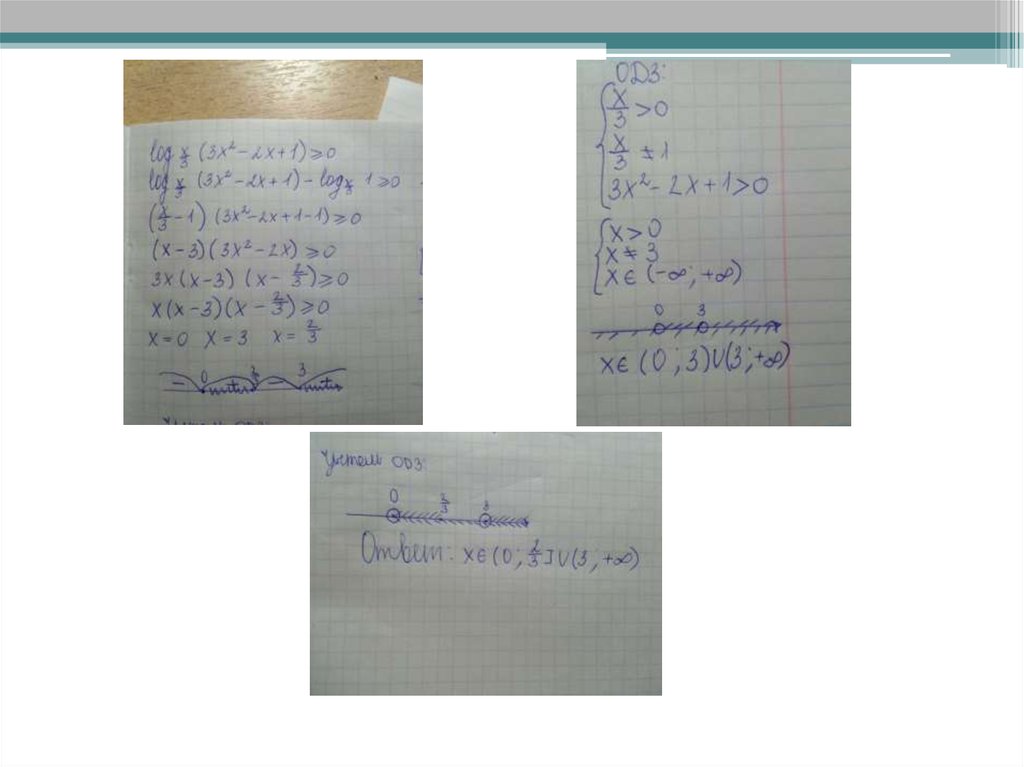 log x/3 (3x² - 2x + 1) ≥ 0
log x/3 (3x² - 2x + 1) - log x/3 1 ≥ 0
(x/3 - 1) (3x² - 2x + 1 - 1) ≥ 0
(x - 3)(3x² - 2x) ≥ 0
3x (x - 3) (x - 2/3) ≥ 0
x(x - 3)(x - 2/3) ≥ 0
x = 0 x = 3 x = 2/3
- 0 + 2/3 - 3 +
Учтем ОДЗ:
ОДЗ:
x/3 > 0
x/3 ≠ 1
3x² - 2x + 1 > 0
x > 0
x ≠ 3
x ∈ (-∞; +∞)
0 3
x ∈ (0; 3)∪(3; +∞)
Учтем ОДЗ:
0 2/3 3
Ответ: x ∈ (0; 2/3]∪(3; +∞)